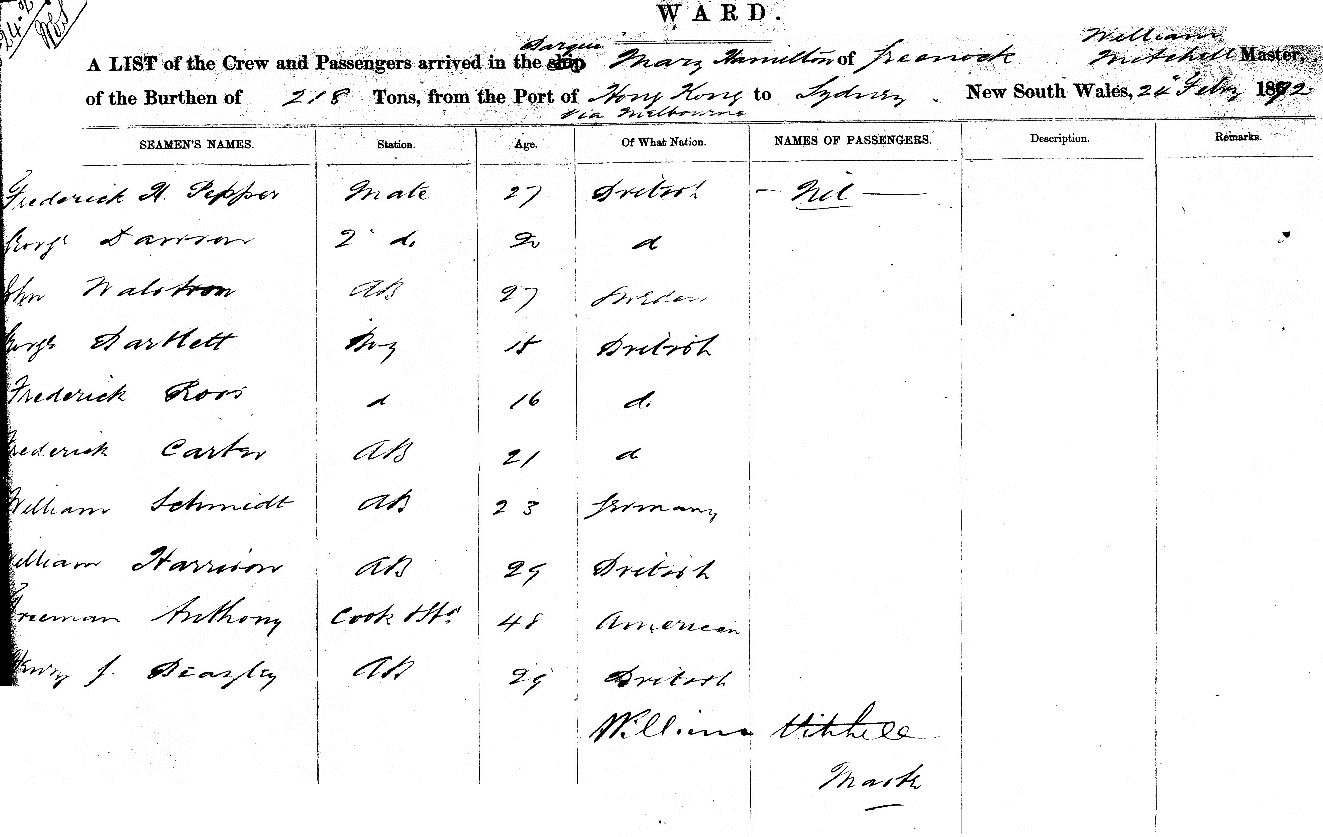 WARD.
Barque William
A LIST of the Crew and Passengers arrived in the ship Mary Hamilton of Greenock Mitchell Master,
of the Burthen of 218 Tons, from the Port of Hong Kong to Sydney. New South Wales, 24 Feby 1872
Via Melbourne
SEAMEN'S NAMES. Station. Age. Of What Nation. NAMES OF PASSENGERS. Description. Remarks.
Frederick H. Pepper Mate 27 British - Nil -
2d d. 20 d
John Walstrom AB 27 Sweden
George Bartlett Boy 18 British
Frederick Roos d 16 d.
Frederick Carter AB 21 d
William Schmidt AB 23 Germany
William Harrison AB 29 British
Freeman Anthony Cook & Std 48 American
Henry J. Beazley AB 29 British
William Mitchell
Master